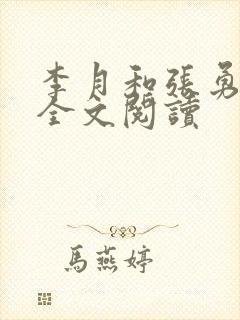 李月和張勇
全文閱讀
馬燕婷